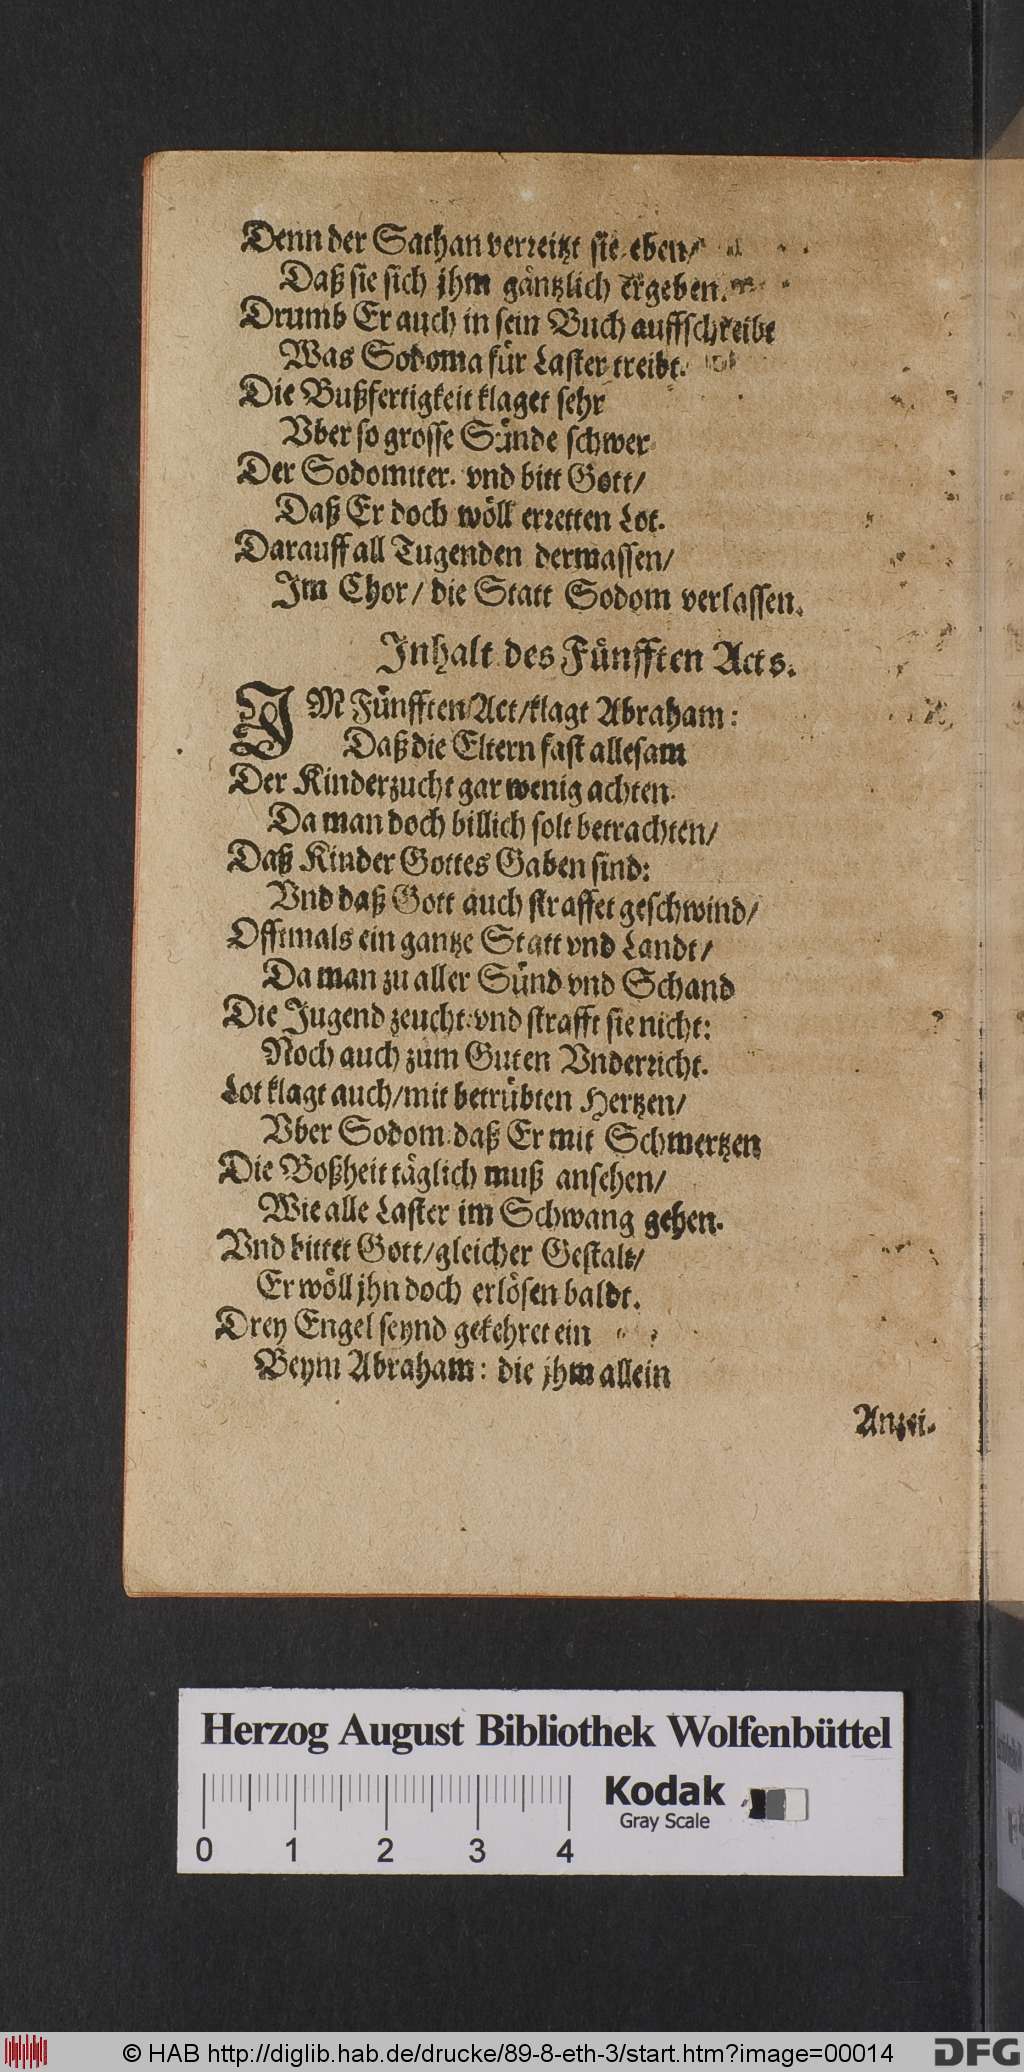 Denn der Sathan verreitzt sie eben/
Daß sie sich jhm gäntzlich ergeben.
Drumb Er auch in sein Buch auffschreibt
Was Sodoma für Laster treibt.
Die Bußfertigkeit klaget sehr
Vber so grosse Sünde schwer
Der Sodomiter. vnd bitt Gott/
Daß Er doch wöll erretten Lot.
Darauff all Tugenden dermassen/
Im Chor/ die Statt Sodom verlassen.
Inhalt des Fünfften Acts.
IM Fünfften Act/klagt Abraham:
Daß die Eltern fast allesam
Der Kinderzucht gar wenig achten.
Da man doch billich solt betrachten/
Daß Kinder Gottes Gaben sind:
Vnd daß Gott auch straffet geschwind/
Offtmals ein gantze Statt vnd Landt/
Da man zu aller Sünd vnd Schand
Die Jugend zeucht: vnd strafft sie nicht:
Noch auch zum Guten Vnderricht.
Lot klagt auch/mit betrübten Hertzen/
Vber Sodom: daß Er mit Schmertzen
Die Boßheit täglich muß ansehen/
Wie alle Laster im Schwang gehen.
Vnd bittet Gott/gleicher Gestalt/
Er wöll jhn doch erlösen baldt.
Drey Engel seynd gekehret ein
Beym Abraham: die jhm allein
Anzei.
Herzog August Bibliothek Wolfenbüttel
Kodak
Gray Scale
0 1 2 3 4
© HAB http://diglib.hab.de/drucke/89-8-eth-3/start.htm?image=00014
DFG